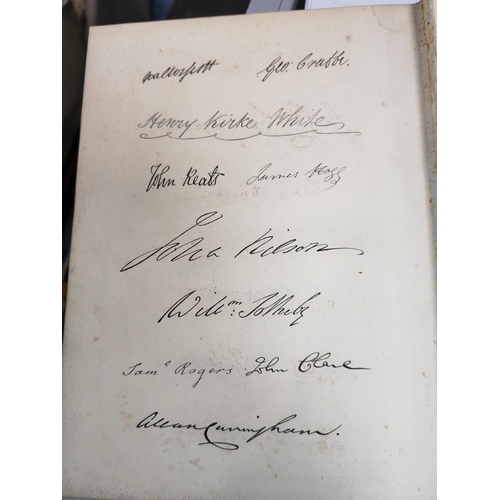 Walter Scott Geo: Crabbe.
Henry Kirke White
John Keats James Hogg
John Wilson
Will.m: Sotheby
Sam.l Rogers John Clare
Allan Cunningham.